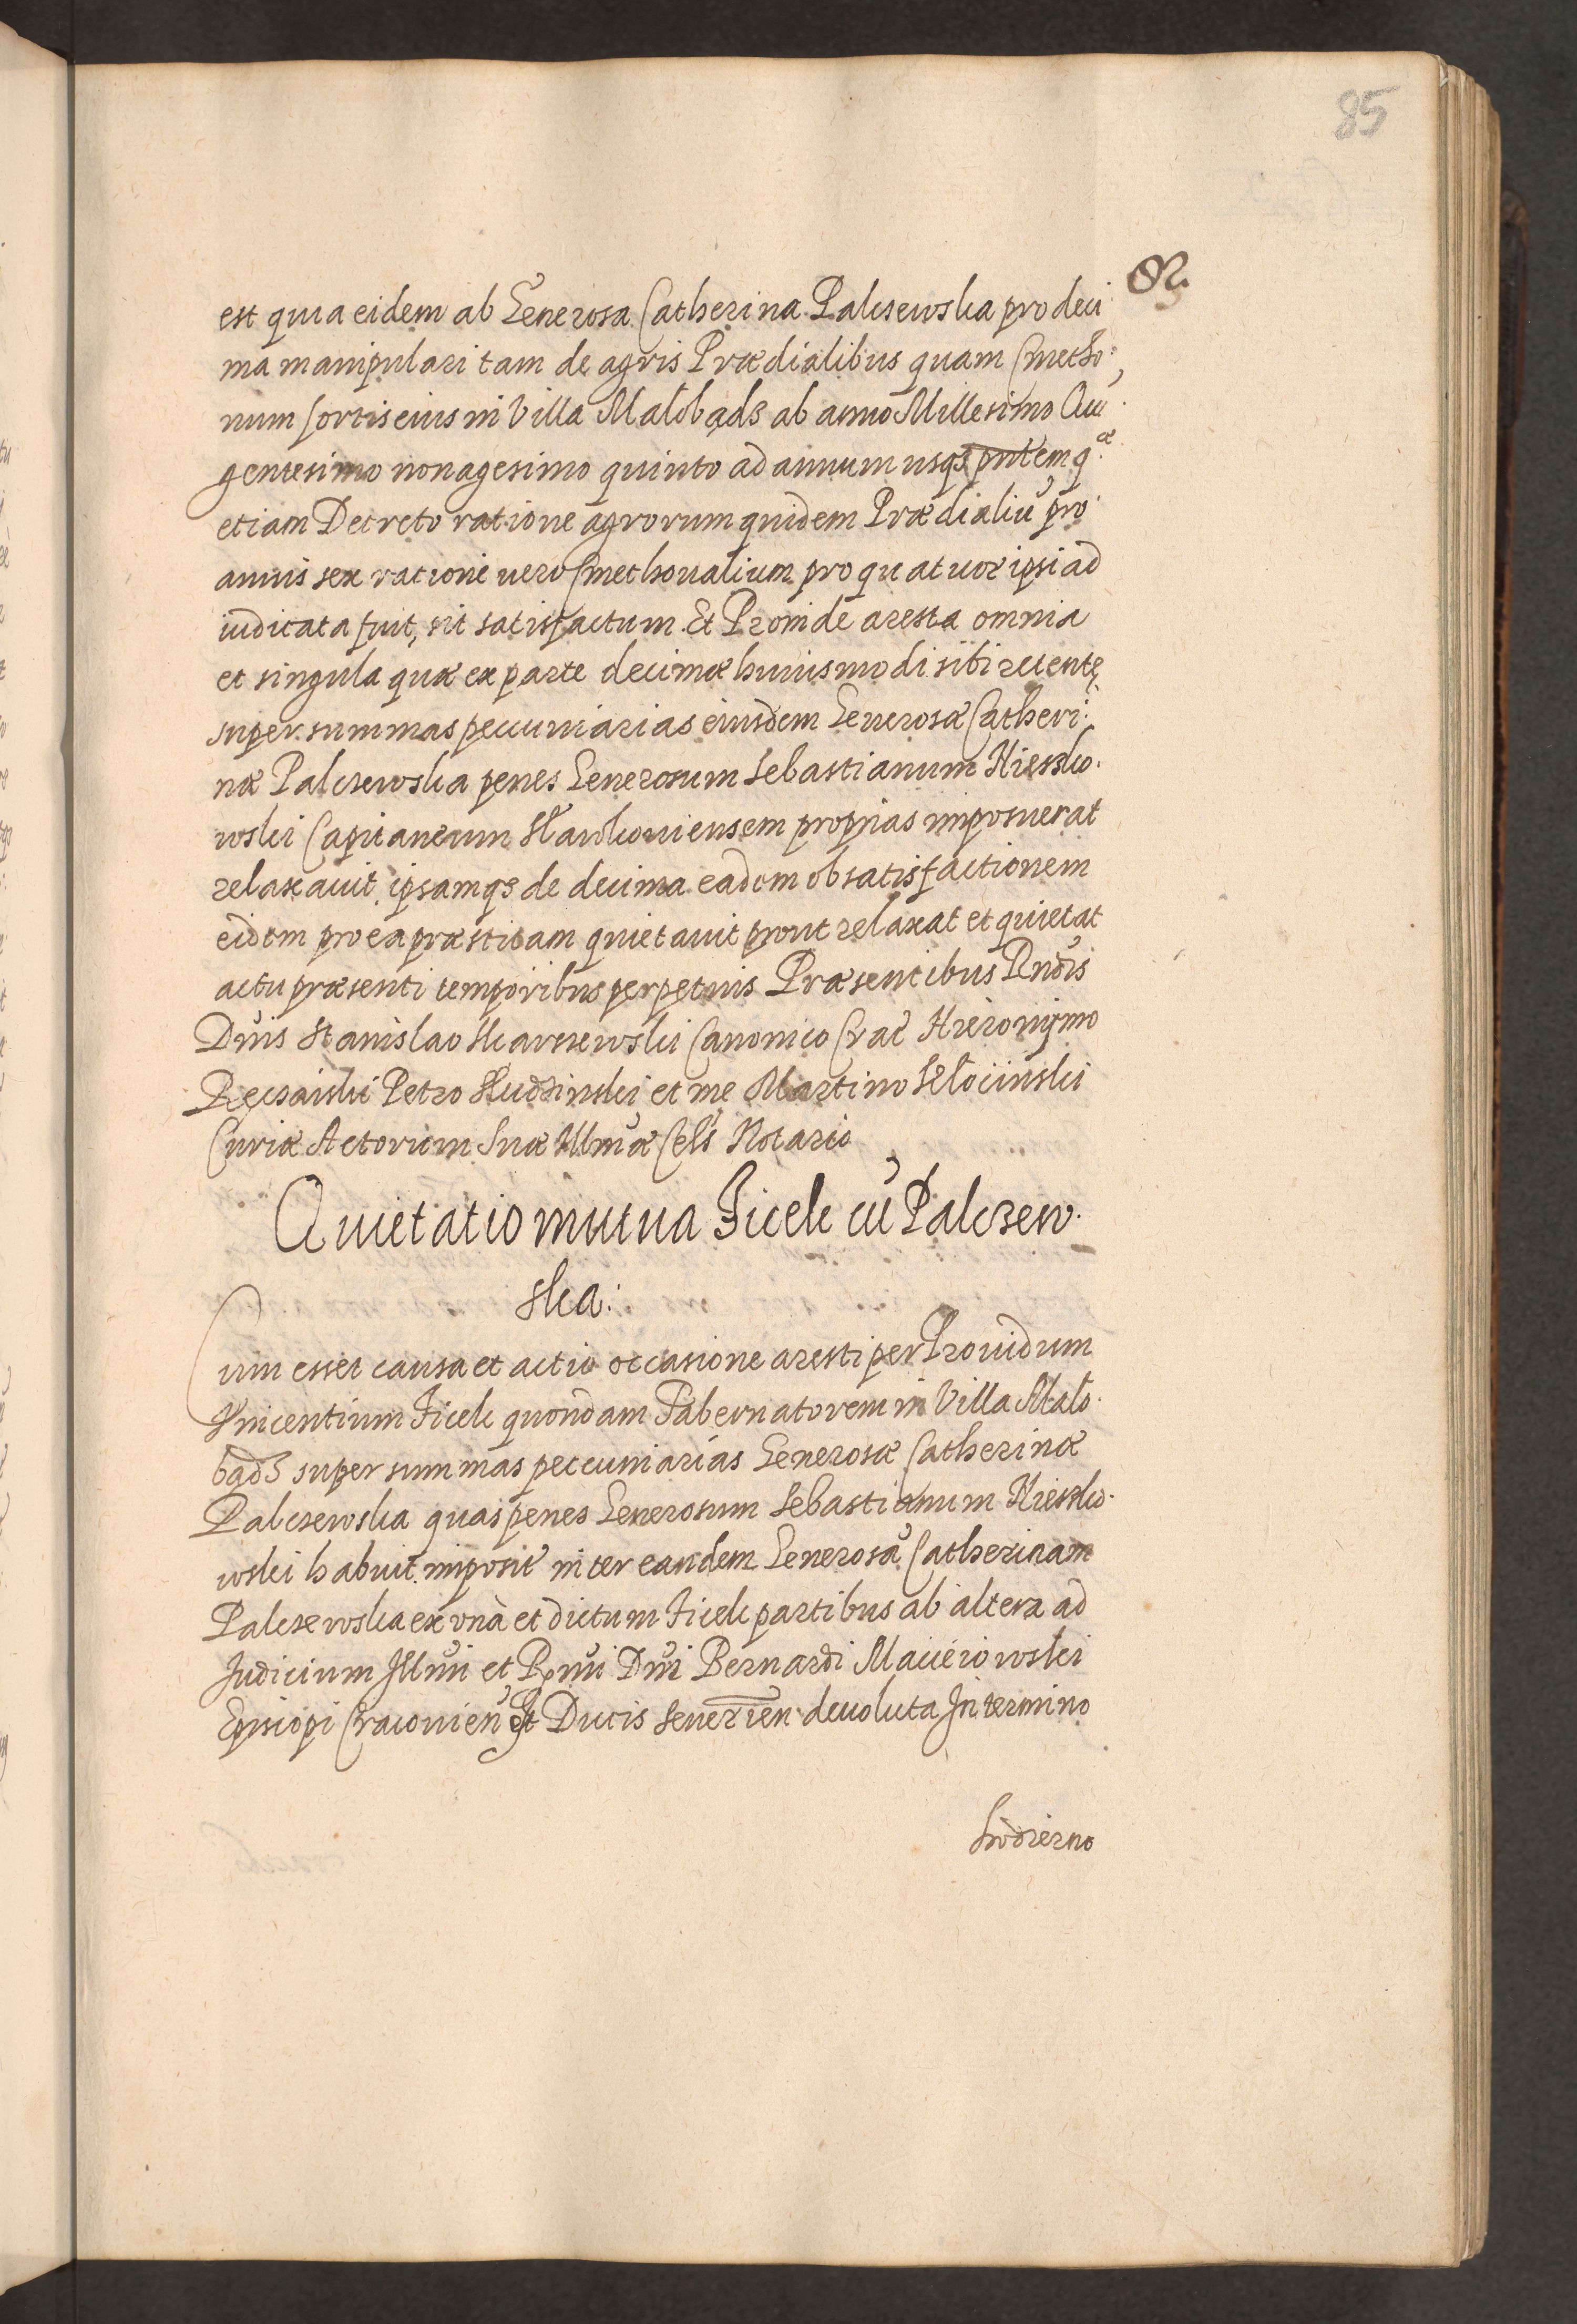 85
82.
est quia eidem ab Generosa Catherina Palczewska pro deci
ma manipulari tam de agris Prædialibus quam Cmetho:
num sortis eius in Villa Malobądz ab anno Millesimo Quī
gentesimo nonagesimo quinto ad annum usq₃ pn̄tem q.
etiam Decreto ratione agrorum quidem Prædialiū pro
annis sex ratione uero Cmethonalium pro quatuor ipsi ad
iudicata fuit, sit satisfactum. Et Proinde aresta omnia
et singula quæ ex parte decimæ huiusmodi sibi retentę
super summas peccuniarias eiusdem Generosæ Catheri:
næ Palczewska penes Generosum Sebastianum Kiesko.
wski Capitaneum Slawkouiensem proprias imposuerat
relaxauit, ipsamq₃ de decima eadem ob satisfactionem
eidem pro ea præstitam quietauit prout relaxat et quietat
actu præsenti temporibus perpetuis Præsentibus Rn̄dis
Dn̄is Stanislao Skarszewski Canonico Crac̄ Hieronymo
Petro Sludzinski et me Martino Klocinski
Curiæ Actorum Suæ Illm̄æ Cels̄ Notario
Quietatio mutua Ficek cū Palczew.
ska:
Cum esset causa et actio occasione aresti per Prouidum
Vincentium Ficek quondam Tabernatorem in Villa Malo.
bądz super summas peccuniarias Generosæ Catherinæ
Palczewska quas penes Generosum Sebastianum Kiesko.
wski habuit imposit̄ inter eandem Generosā Catherinam
Palczewska ex unà et dictum Ficek partibus ab altera ad
Judicium Illm̄i et Rm̄i Dn̄i Bernardi Macieiowski
Episcopi Cracouien̄ et Ducis Seuerien̄ deuoluta In termino
hodierno